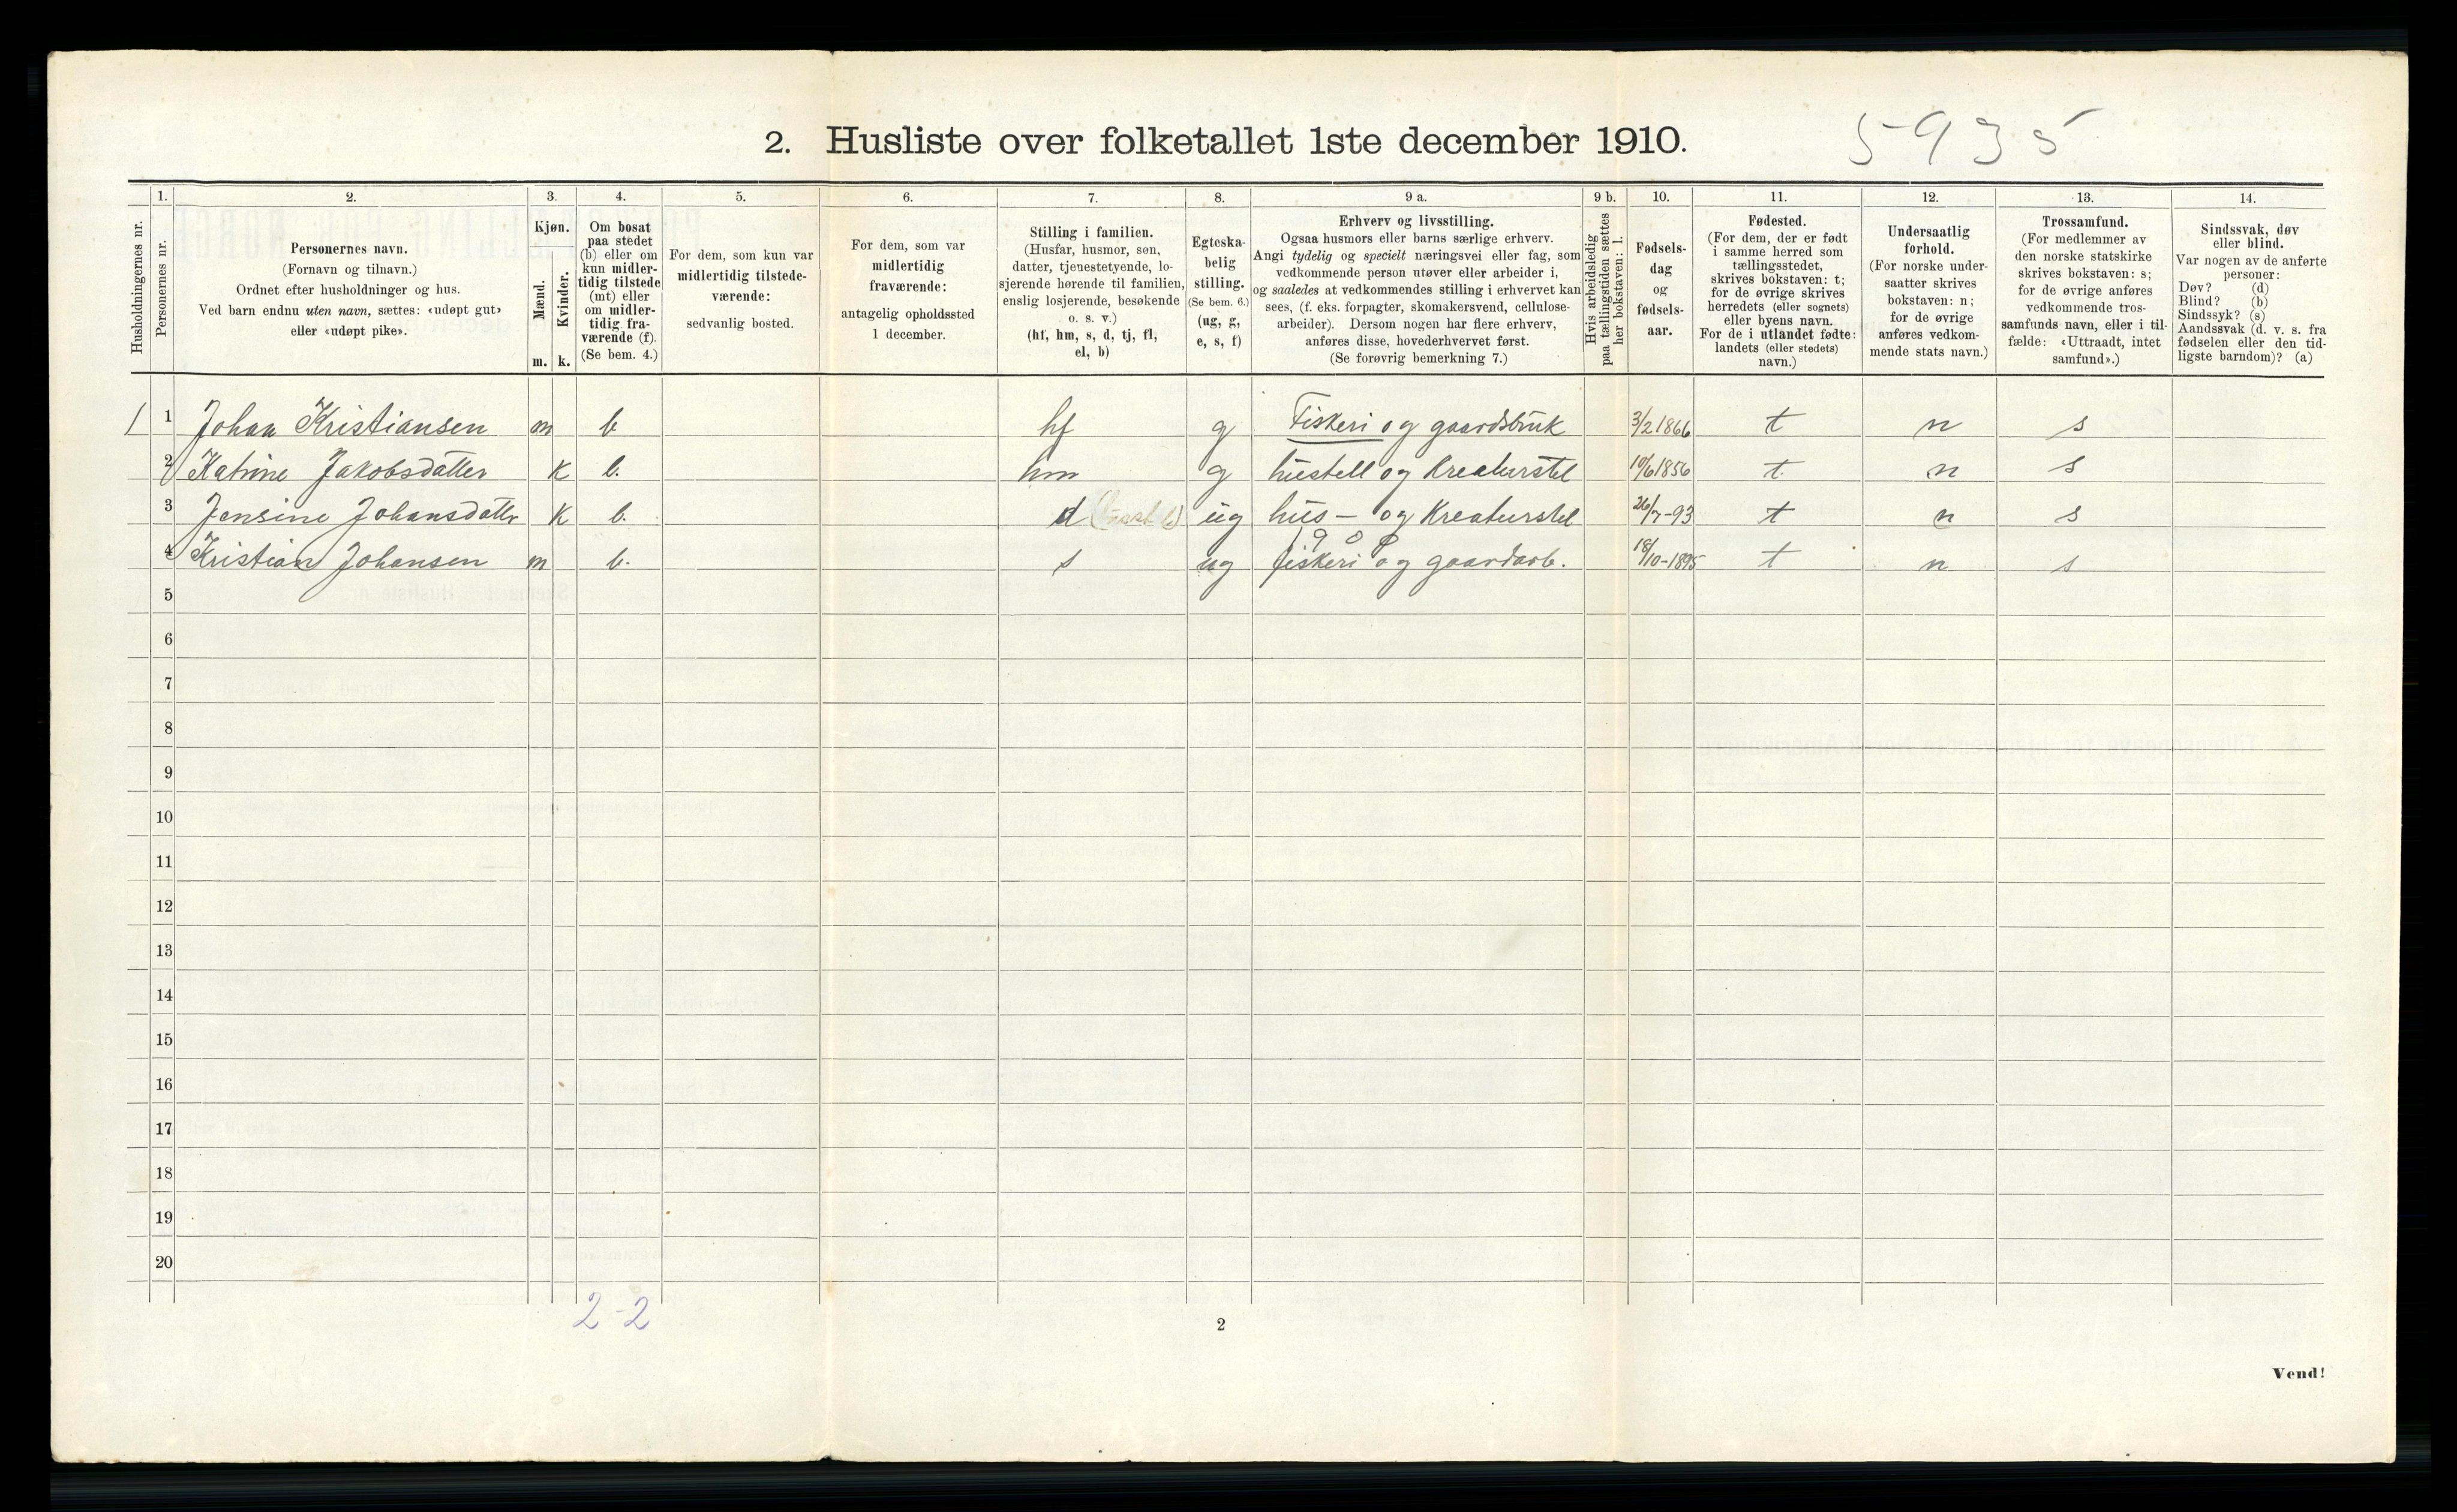 2. Husliste over folketallet 1ste december 1910.
5935
1. 2. 3. 4. 5. 6. 7. 8. 9 a. 9 b. 10. 11. 12. 13. 14.
Husholdningernes nr.
Personernes nr.
Personernes navn.
(Fornavn og tilnavn.)
Ordnet efter husholdninger og hus.
Ved barn endnu uten navn, sættes: «udøpt gut»
eller «udøpt pike».
Kjøn.
Mænd.
Kvinder.
m. k.
Om bosat
paa stedet
(b) eller om
kun midler-
tidig tilstede
(mt) eller
om midler-
tidig fra-
værende (f).
(Se bem. 4.)
For dem, som kun var
midlertidig tilstede-
værende:
sedvanlig bosted.
For dem, som var
midlertidig
fraværende:
antagelig opholdssted
1 december.
Stilling i familien.
(Husfar, husmor, søn,
datter, tjenestetyende, lo-
sjerende hørende til familien,
enslig losjerende, besøkende
o. s. v.)
(hf, hm, s, d, tj, fl,
el, b)
Egteska-
belig
stilling.
(Se bem. 6.)
(ug, g,
e, s, f)
Erhverv og livsstilling.
Ogsaa husmors eller barns særlige erhverv.
Angi tydelig og specielt næringsvei eller fag, som
vedkommende person utøver eller arbeider i,
og saaledes at vedkommendes stilling i erhvervet kan
sees, (f. eks. forpagter, skomakersvend, cellulose-
arbeider). Dersom nogen har flere erhverv,
anføres disse, hovederhvervet først.
(Se forøvrig bemerkning 7.)
Hvis arbeidsledig
paa tællingstiden sættes
her bokstaven: l.
Fødsels-
dag
og
fødsels-
aar.
Fødested.
(For dem, der er født
i samme herred som
tællingsstedet,
skrives bokstaven: t;
for de øvrige skrives
herredets (eller sognets)
eller byens navn.
For de i utlandet fødte:
landets (eller stedets)
navn.)
Undersaatlig
forhold.
(For norske under-
saatter skrives
bokstaven: n;
for de øvrige
anføres vedkom-
mende stats navn.)
Trossamfund.
(For medlemmer av
den norske statskirke
skrives bokstaven: s;
for de øvrige anføres
vedkommende tros-
samfunds navn, eller i til-
fælde: «Uttraadt, intet
samfund».)
Sindssvak, døv
eller blind.
Var nogen av de anførte
personer:
Døv? (d)
Blind? (b)
Sindssyk? (s)
Aandssvak (d. v. s. fra
fødselen eller den tid-
ligste barndom)? (a)
1 1 Johan Kristiansen m b hf g Fiskeri og gaardsbruk 3/2 1866 t n s
2 Katrine Jakobsdatter k b. hm g husstell og Kreaturstel 10/6 1856 t. n s
3 Jensine Johansdattr k b. d ug hus- og Kreaturstel 26/7-93 t n s
1908
4 Kristian Johansen m b. s ug fiskeri og gaardarb. 18/10-1895 t n s
5
6
7
8
9
10
11
12
13
14
15
16
17
18
19
20
2-2
2
Vend!